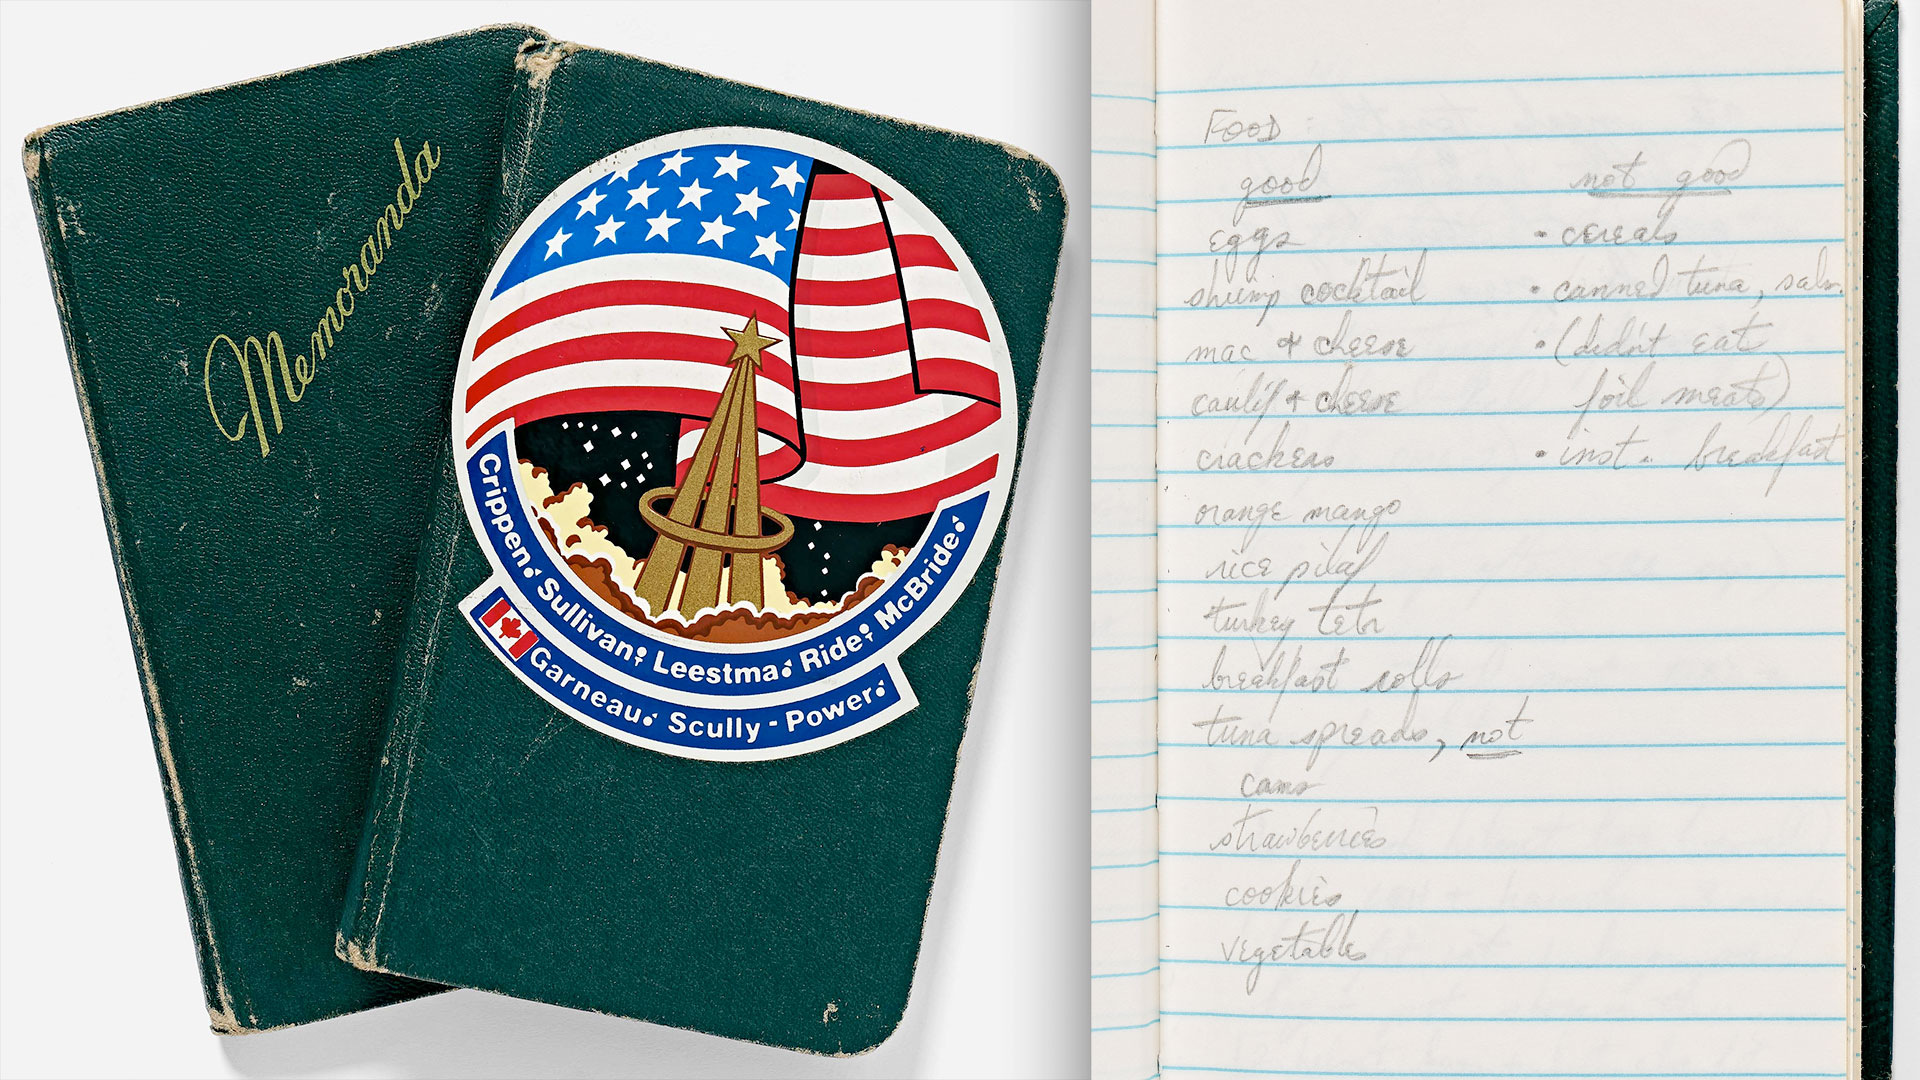 Memoranda
Crippen Sullivan Leestma Ride McBride
Garneau Scully-Power
FOOD:
good
eggs
shrimp cocktail
mac + cheese
caulif + cheese
crackers
orange mango
rice pilaf
turkey tetr
breakfast rolls
tuna spreads, not
cans
strawberries
cookies
vegetables
not good
• cereals
• canned tuna, salm.
• (didn't eat
foil meats)
• inst. breakfast